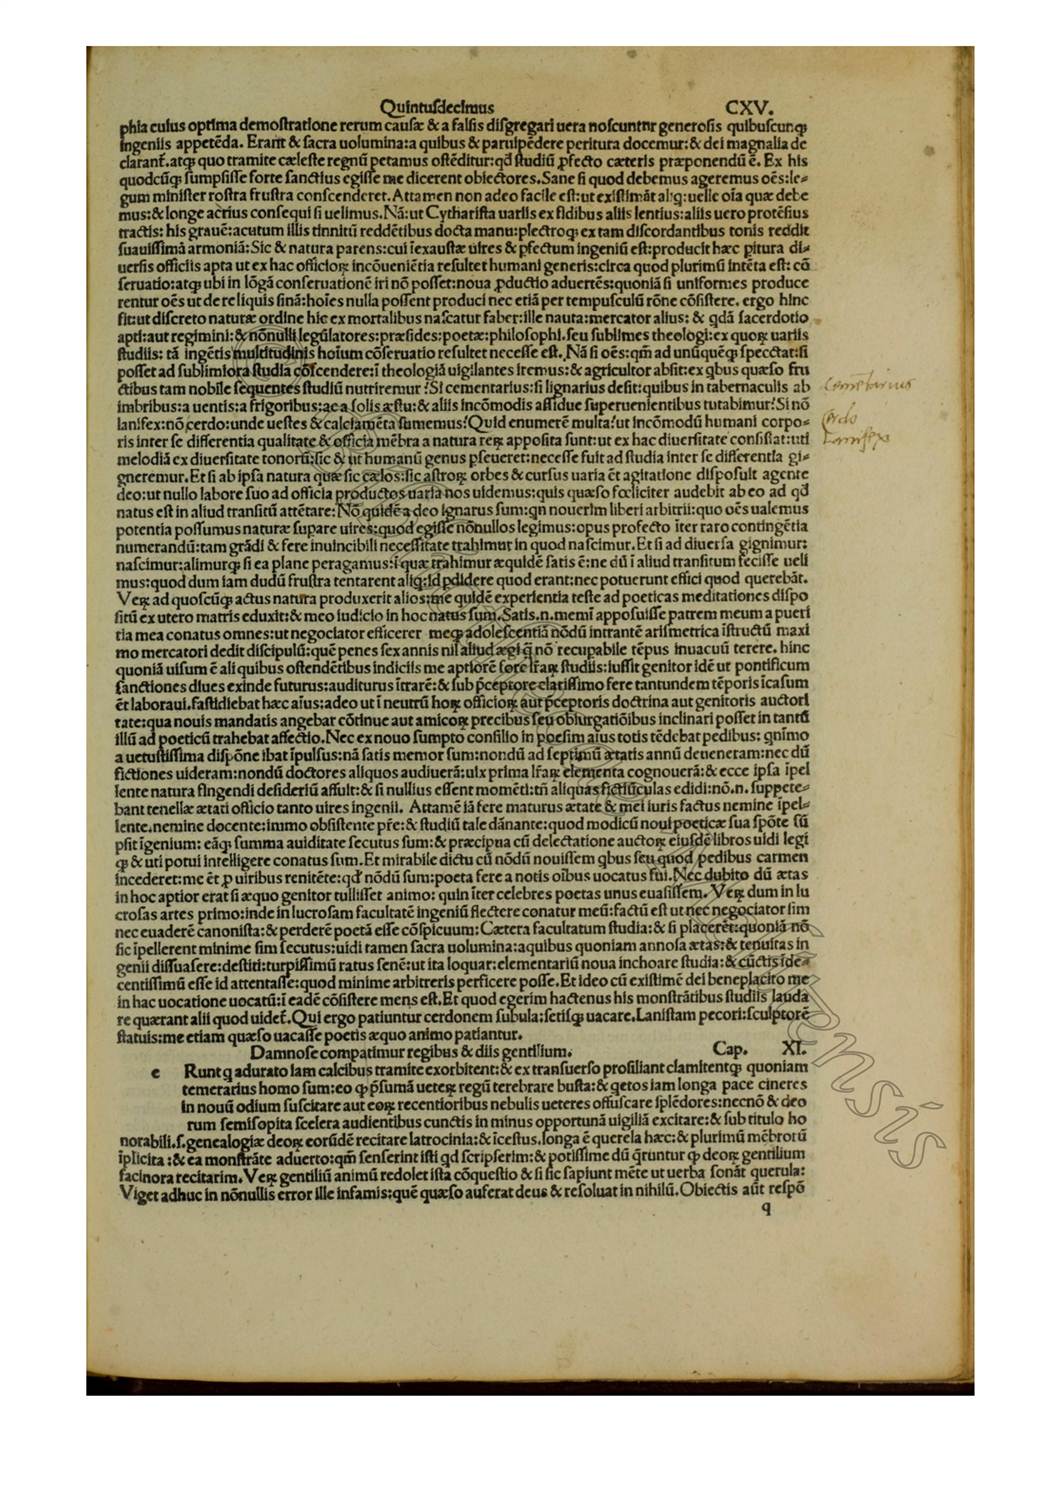 Quintusdecimus CXV.
phia cuius optima demõstratione rerum causæ & a falsis disgregari uera noscuntnr generosis quibuscunqꝫ
ingeniis appetẽda. Erant & sacra uolumina:a quibus & paruipẽdere peritura docemur:& dei magnalia de
clarant̃.atqꝫ quo tramite cæleste regnũ petamus ostẽditur:qđ studiũ ꝓfecto cæteris præponendũ ẽ. Ex his
quodcũqꝫ sumpsisse forte sanctius egisse me dicerent obiectores. Sane si quod debemus ageremus oẽs:le⸗
gum minister rostra frustra conscenderet. Attamen non adeo facile est:ut existimãt aliq:uelle oĩa quæ debe
mus:& longe acrius consequi si uelimus. Nã:ut Cytharista uariis ex fidibus aliis lentius:aliis uero protẽsius
tractis: his grauẽ:acutum illis tinnitũ reddẽtibus docta manu:plectroqꝫ ex tam discordantibus tonis reddit
suauissimã armoniã: Sic & natura parens:cui ĩexaustæ uires & ꝑfectum ingeniũ est:producit hæc ꝑitura di⸗
uersis officiis apta ut ex hac officioꝝ incõueniẽtia resultet humani generis:circa quod plurimũ intẽta est: cõ
seruatio:atqꝫ ubi in lõgã conseruationẽ iri nõ posset:noua ꝓductio aduertẽs:quoniã si uniformes produce
rentur oẽs ut de reliquis sinã:hoĩes nulla possent produci nec etiã per tempusculũ rõne cõsistere. ergo hinc
fit:ut discreto naturæ ordine hic ex mortalibus nascatur faber:ille nauta:mercator alius: & qdã sacerdotio
apti:aut regimini:& nõnulli legũlatores:præsides:poetæ:philosophi.seu sublimes theologi:ex quoꝝ uariis
studiis: tã ingẽtis multitudinis hoĩum cõseruatio resultet necesse est. Nã si oẽs:qm̃ ad unũquẽqꝫ spectat:si
posset ad sublimiora studia cõscendere:ĩ theologiã uigilantes iremus:& agricultor absit:ex qbus quæso fru
ctibus tam nobile sequentes studiũ nutriremur? Si cementarius:si lignarius desit:quibus in tabernaculis ab
imbribus:a uentis:a frigoribus:ac a solis æstu:& aliis incõmodis assidue superuenientibus tutabimur? Si nõ
lanifex:nõ cerdo:unde uestes & calciamẽta sumemus? Quid enumerẽ multa? ut incõmodũ humani corpo⸗
ris inter se differentia qualitate & officia mẽbra a natura reꝝ apposita sunt:ut ex hac diuersitate consistat:uti
melodiã ex diuersitate tonorũ:sic & ut humanũ genus ꝑseueret:necesse fuit ad studia inter se differentia gi⸗
gneremur. Et si ab ipsa natura quæ sic cælos:sic astroꝝ orbes & cursus uaria ẽt agitatione disposuit agente
deo:ut nullo labore suo ad officia productos uaria nos uidemus:quis quæso fœliciter audebit ab eo ad qđ
natus est in aliud transitũ attẽtare: Nõ quidẽ a deo ignarus sum:qn nouerim liberi arbitrii:quo oẽs ualemus
potentia possumus naturæ suꝑare uires:quod egisse nõnullos legimus:opus profecto ĩter raro contingẽtia
numerandũ:tam grãdi & fere inuincibili necessitate trahimur in quod nascimur. Et si ad diuersa gignimur:
nascimur:alimurqꝫ si ea plane peragamus:ĩ quæ trahimur æquidẽ satis ẽ:ne dũ ĩ aliud transitum fecisse ueli
mus:quod dum iam dudũ frustra tentarent aliq:id ꝑdidere quod erant:nec potuerunt effici quod querebãt.
Veꝝ ad quoscũqꝫ actus natura produxerit alios:me quidẽ experientia teste ad poeticas meditationes dispo
sitũ ex utero matris eduxit:& meo iudicio in hoc natus sum. Satis.n.memĩ apposuisse patrem meum a pueri
tia mea conatus omnes:ut negociator efficerer meqꝫ adolescentiã nõdũ intrantẽ arismetrica ĩstructũ maxi
mo mercatori dedit discipulũ:quẽ penes sex annis nil aliud ægi q̃ nõ recupabile tẽpus inuacuũ terere. hinc
quoniã uisum ẽ ali quibus ostendẽtibus indiciis me aptiorẽ fore lr̃aꝝ studiis:iussit genitor idẽ ut pontificum
sanctiones diues exinde futurus:auditurus ĩtrarẽ:& sub p̃ceptore clarissimo fere tantundem tẽporis ĩcasum
ẽt laboraui.fastidiebat hæc aĩus:adeo ut ĩ neutrũ hoꝝ officioꝝ aut p̃ceptoris doctrina aut genitoris auctori
tate:qua nouis mandatis angebar cõtinue aut amicoꝝ precibus seu obiurgatiõibus inclinari posset in tantũ
illũ ad poeticũ trahebat affectio. Nec ex nouo sumpto consilio in poesim aĩus totis tẽdebat pedibus: qnĩmo
a uetustissima dispõne ibat ĩpulsus:nã satis memor sum:nondũ ad septimũ ætatis annũ deueneram:nec dũ
fictiones uideram:nondũ doctores aliquos audiuerã:uix prima lr̃aꝝ elementa cognouerã:& ecce ipsa ĩpel
lente natura fingendi desideriũ affuit:& si nullius essent momẽti:tñ aliquas fictiũculas edidi:nõ.n. suppete⸗
bant tenellæ ætati officio tanto uires ingenii. Attamẽ iã fere maturus ætate & mei iuris factus nemine ĩpel⸗
lente.nemine docente:immo obsistente pr̃e:& studiũ tale dãnante:quod modicũ noui poeticæ sua spõte sũ
psit ĩgenium: eãqꝫ summa auiditate secutus sum:& præcipua cũ delectatione auctoꝝ eiusdẽ libros uidi legi
qꝫ & uti potui intelligere conatus sum. Et mirabile dictu cũ nõdũ nouissem qbus seu quod pedibus carmen
incederet:me ẽt ꝓ uiribus renitẽte:qđ nõdũ sum:poeta fere a notis oĩbus uocatus fui. Nec dubito dũ ætas
in hoc aptior erat si æquo genitor tullisset animo: quin ĩter celebres poetas unus euasissem. Veꝝ dum in lu
crosas artes primo:inde in lucrosam facultatẽ ingeniũ flectere conatur meũ:factũ est ut nec negociator sim
nec euaderẽ canonista:& perderẽ poetã esse cõspicuum: Cætera facultatum studia:& si placerẽt:quoniã nõ
sic ĩpellerent minime sim secutus:uidi tamen sacra uolumina:aquibus quoniam annosa ætas:& tenuitas in
genii dissuasere:destiti:turpissimũ ratus senẽ:ut ita loquar:elementariũ noua inchoare studia:& cũctis ĩde⸗
centissimũ esse id attentasse:quod minime arbitreris perficere posse. Et ideo cũ existimẽ dei beneplacito me
in hac uocatione uocatũ:ĩ eadẽ cõsistere mens est. Et quod egerim hactenus his monstrãtibus studiis lauda
re quærant alii quod uidet̃. Qui ergo patiuntur cerdonem subula:setisqꝫ uacare. Lanistam pecori:sculptorẽ
statuis:me etiam quæso uacasse poetis æquo animo patiantur.
Damnose compatimur regibus & diis gentilium. Cap. XI.
e Runt q adurato iam calcibus tramite exorbitent:& ex transuerso prosiliant clamitentqꝫ quoniam
temerarius homo sum:eo qꝫ p̃sumã ueteꝝ regũ terebrare busta:& qetos iam longa pace cineres
in nouũ odium suscitare aut eoꝝ recentioribus nebulis ueteres offuscare splẽdores:necnõ & deo
rum semisopita scelera audientibus cunctis in minus opportunã uigiliã excitare:& sub titulo ho
norabili.s.genealogiæ deoꝝ eorũdẽ recitare latrocinia:& ĩcestus.longa ẽ querela hæc:& plurimũ mẽbrorũ
ĩplicita :& ea monstrãte aduerto:qm̃ senserint isti qđ scripserim:& potissime dũ q̃runtur qꝫ deoꝝ gentilium
facinora recitarim. Veꝝ gentiliũ animũ redolet ista cõquestio & si sic sapiunt mẽte ut uerba sonãt querula:
Viget adhuc in nõnullis error ille infamis:quẽ quæso auferat deus & resoluat in nihilũ. Obiectis aũt respõ
q
Cementarius
Cerdo
Lanifex